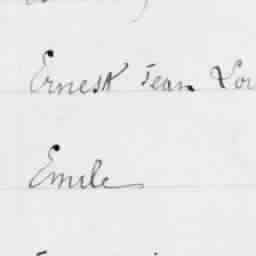 Ernest Jean Lou
Emile